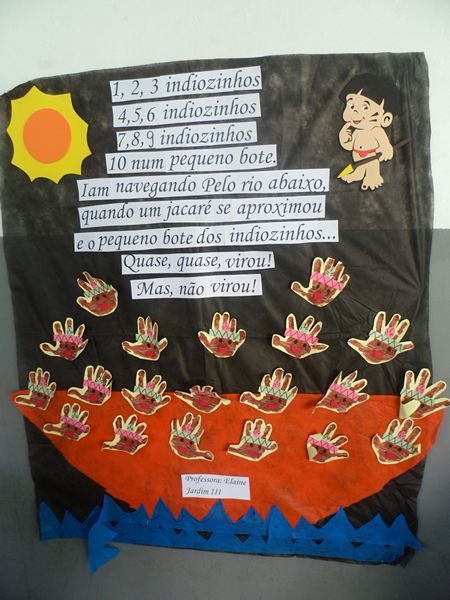 1, 2, 3 indiozinhos
4,5,6 indiozinhos
7,8,9 indiozinhos
10 num pequeno bote.
Iam navegando Pelo rio abaixo,
quando um jacaré se aproximou
e o pequeno bote dos indiozinhos...
Quase, quase, virou!
Mas, não virou!
Professora: Elaine
Jardim III